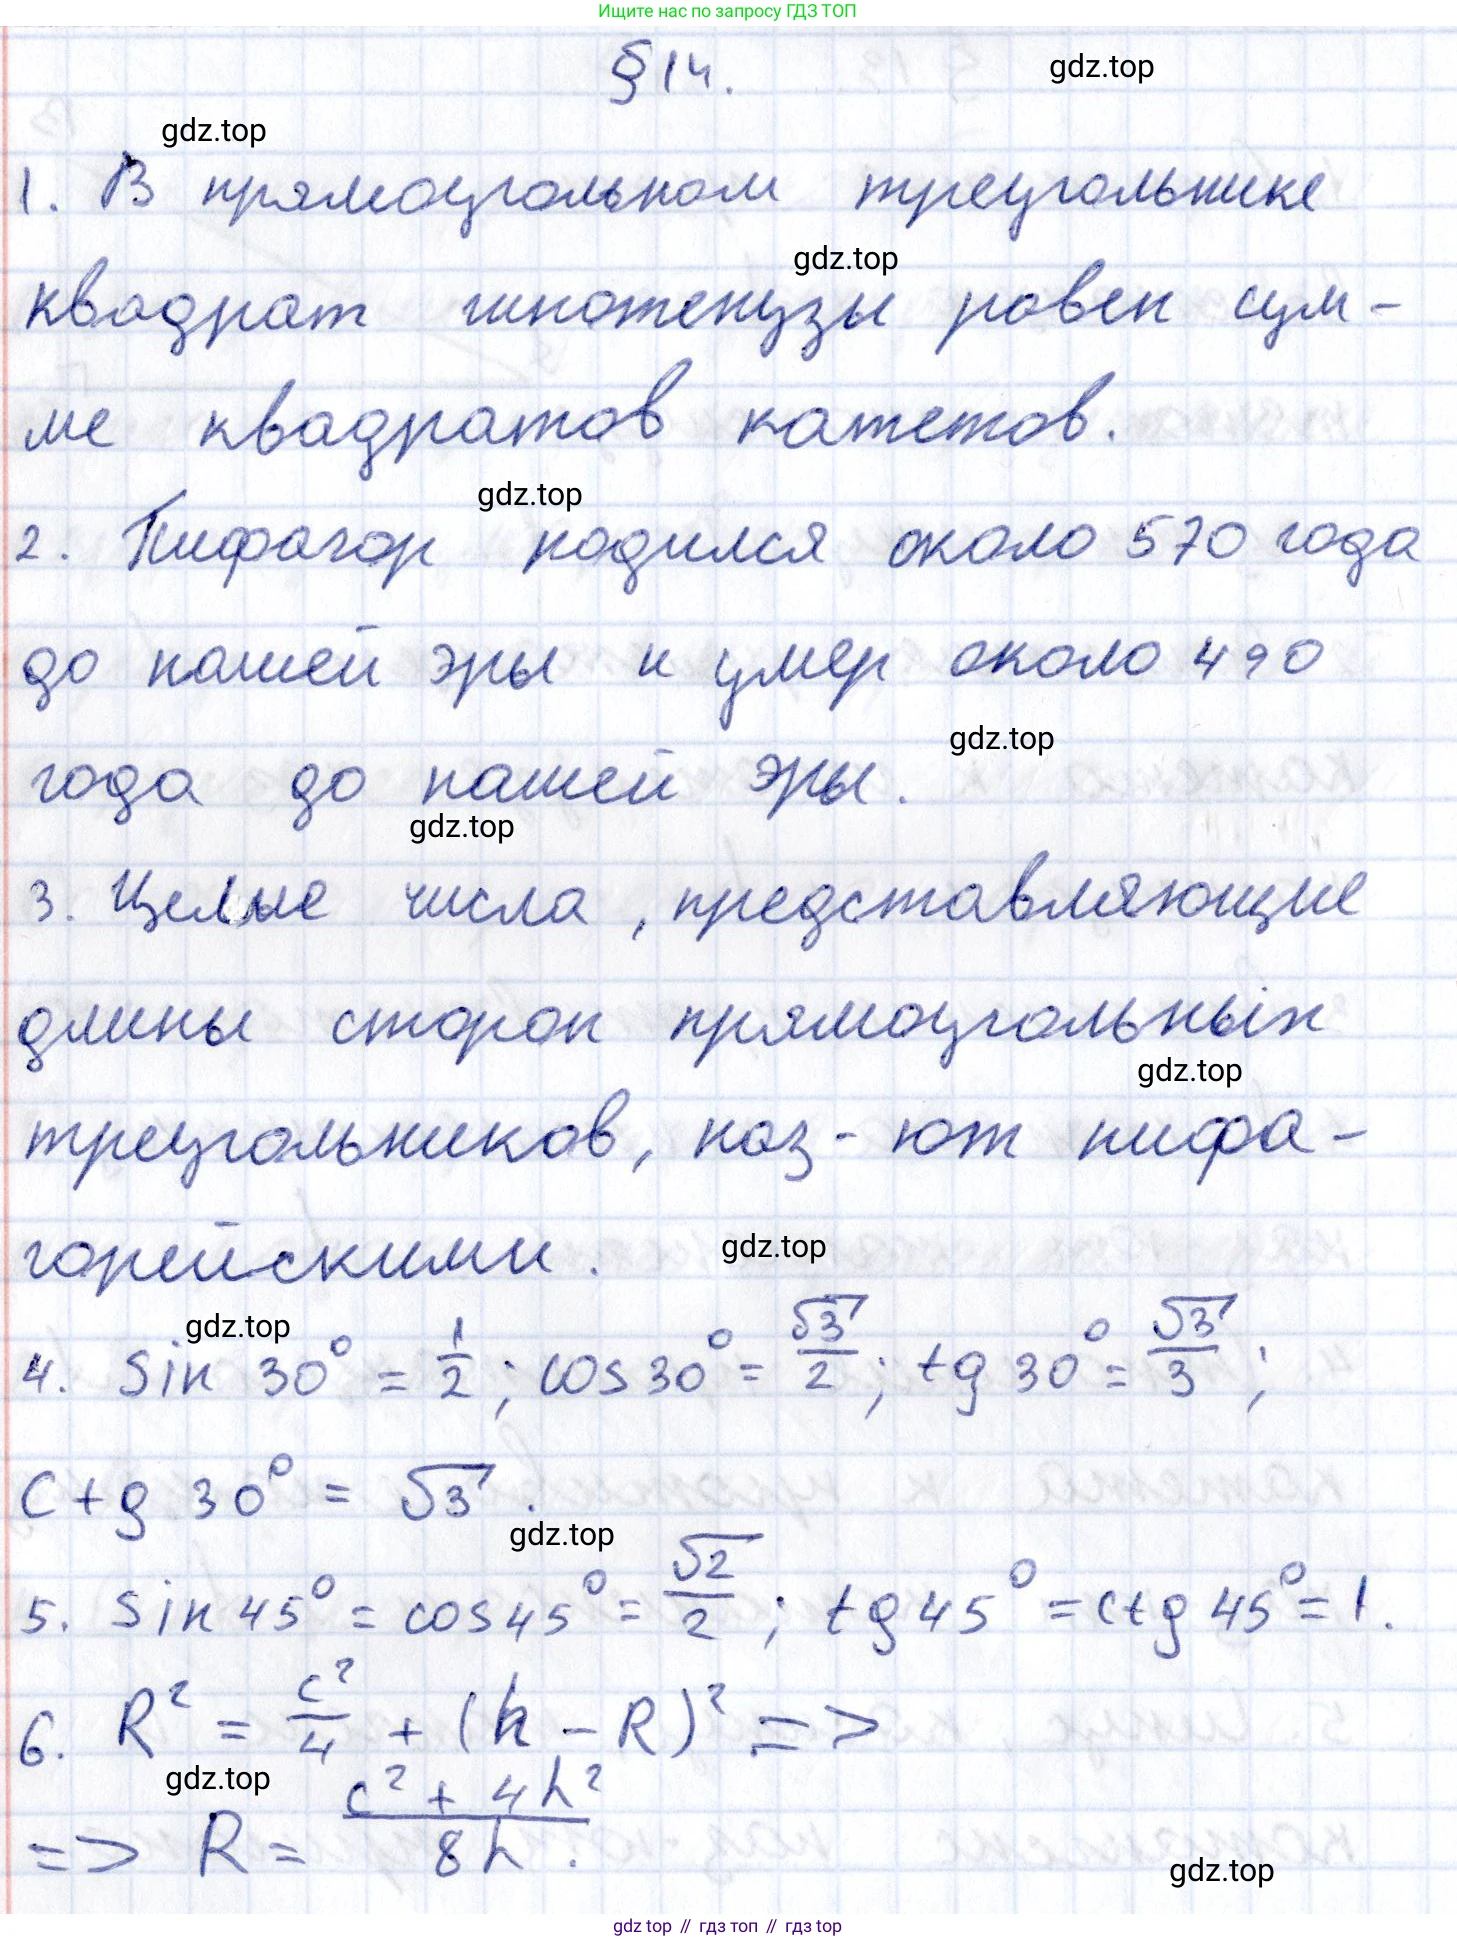 Ищите нас по запросу ГДЗ ТОП
§ 14.
gdz.top
gdz.top
1. В прямоугольном треугольнике
gdz.top
квадрат гипотенузы равен сум-
ме квадратов катетов.
gdz.top
2. Пифагор родился около 570 года
до нашей эры и умер около 490
gdz.top
года до нашей эры.
gdz.top
3. Целые числа, представляющие
длины сторон прямоугольных
gdz.top
треугольников, наз-ют пифа-
горейскими.
gdz.top
gdz.top
4. sin 30° = 1/2; cos 30° = √3/2; tg 30° = √3/3;
ctg 30° = √3.
gdz.top
5. sin 45° = cos 45° = √2/2; tg 45° = ctg 45° = 1.
6. R² = c²/4 + (h - R)² =>
gdz.top
=> R = (c² + 4h²)/8h.
gdz.top
gdz top // гдз топ // гдз top